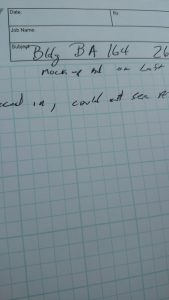 Date: By:
Job Name:
Subject: Bldg BA 164 26
Mock up on Last
in, could not see